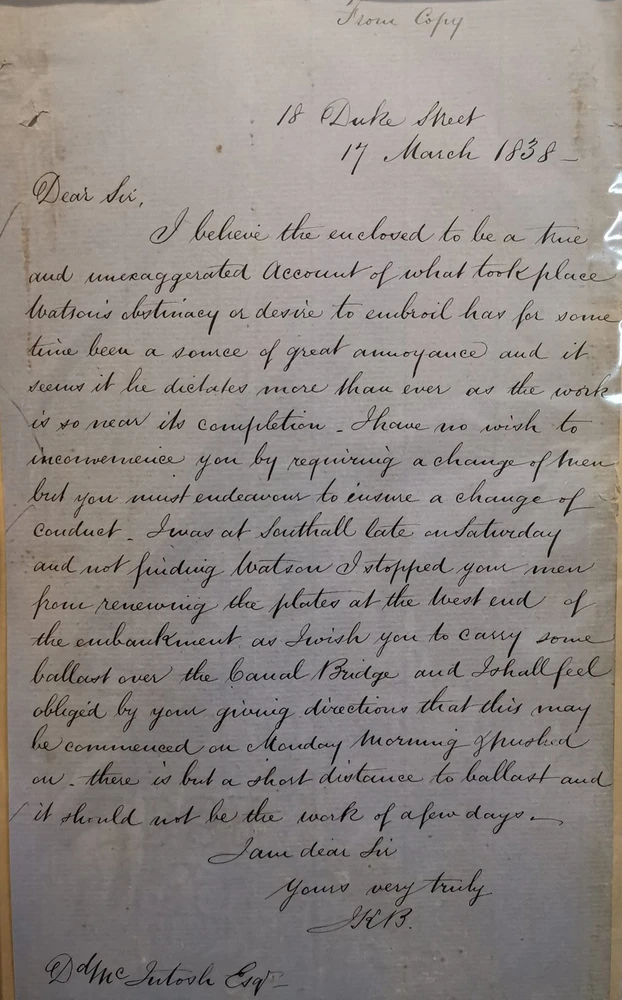 From Copy
18 Duke Street
17 March 1838 _
Dear Sir,
I believe the enclosed to be a true
and unexaggerated Account of what took place
Watson's obstinacy or desire to embroil has for some
time been a source of great annoyance and it
seems it he dictates more than ever as the work
is so near its completion _ I have no wish to
inconvenience you by requiring a change of men
but you must endeavour to ensure a change of
conduct _ I was at Southall late on Saturday
and not finding Watson I stopped your men
from renewing the plates at the West end of
the embankment as I wish you to carry some
ballast over the Canal Bridge and I shall feel
obliged by your giving directions that this may
be commenced on Monday Morning & pushed
on _ there is but a short distance to ballast and
it should not be the work of a few days. _
I am dear Sir
Yours very truly
IKB.
Dd McIntosh Esqr _